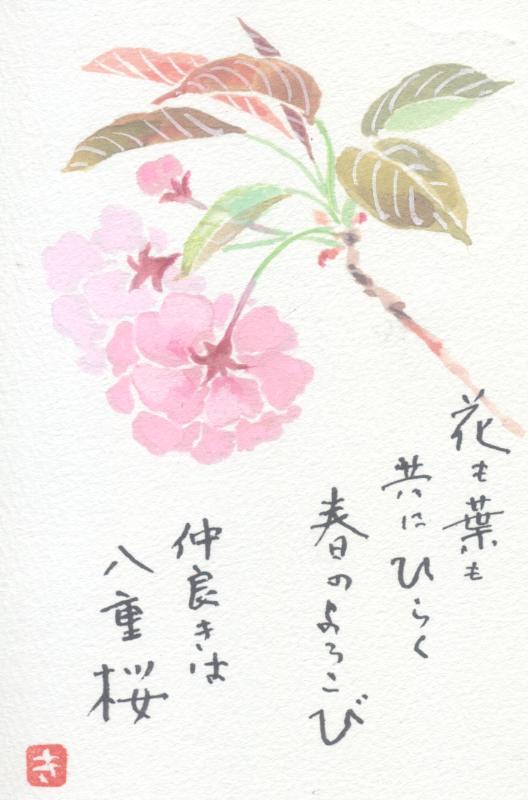 花も葉も
共にひらく
春のよろこび
仲良きは
八重桜
き